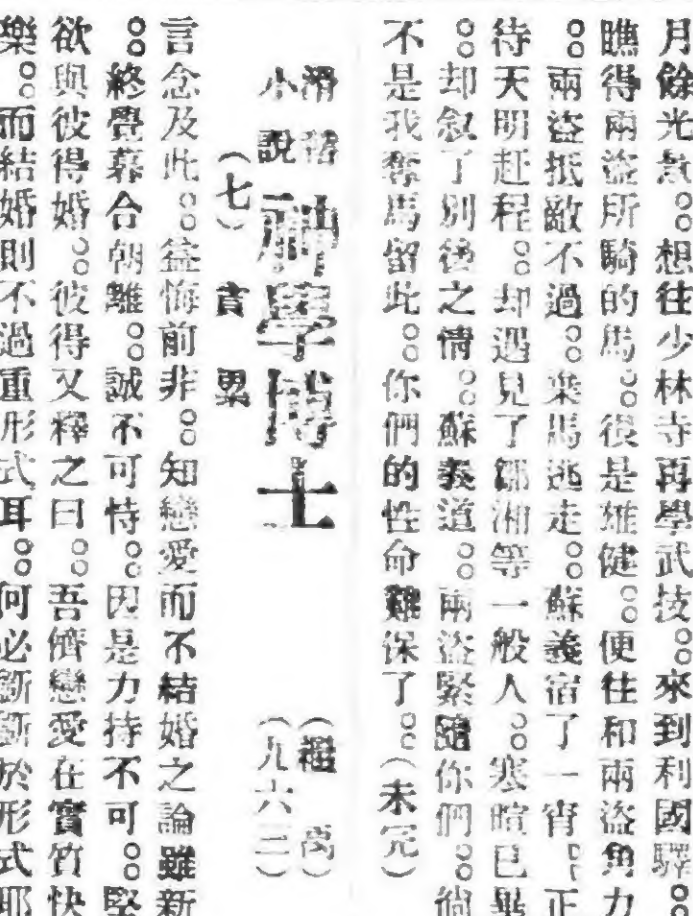 月餘光景。。想往少林寺再學武技。。來到利國驛。。
瞧得兩盜所騎的馬。。很是雄健。。便往和兩盜角力
。。兩盜抵敵不過。。棄馬逃走。。蘇義宿了一宵。。正
待天明赶程。。却遇見了鄒湘等一般人。。寒暄已畢
。。却叙了別後之情。。蘇義道。。兩盜緊隨你們。。倘
不是我奪馬留此。。你們的性命難保了。。(未完)
滑稽小說 神學博士 (禤 )
(七) 責 累 (九六二)
言念及此。。益悔前非。。知戀愛而不結婚之論雖新
。。終覺暮合朝離。。誠不可恃。。因是力持不可。。堅
欲與彼得婚。。彼得又釋之曰。。吾儕戀愛在實質快
樂。。而結婚則不過重形式耳。。何必斷斷於形式耶